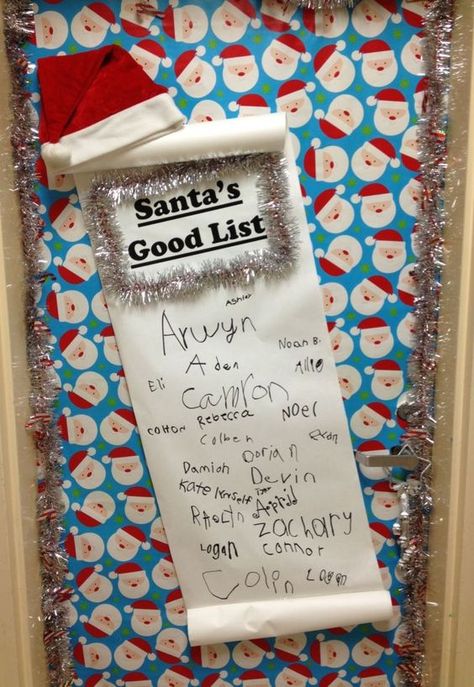 Santa's
Good List
Ashley
Arwyn
Noah B.
Aden
Allie
Eli
Camron
Colton
Rebecca
Noel
Colben
Dorian
Damian
Devin
Kate
Zachary
Logan
Connor
Colin
Logan